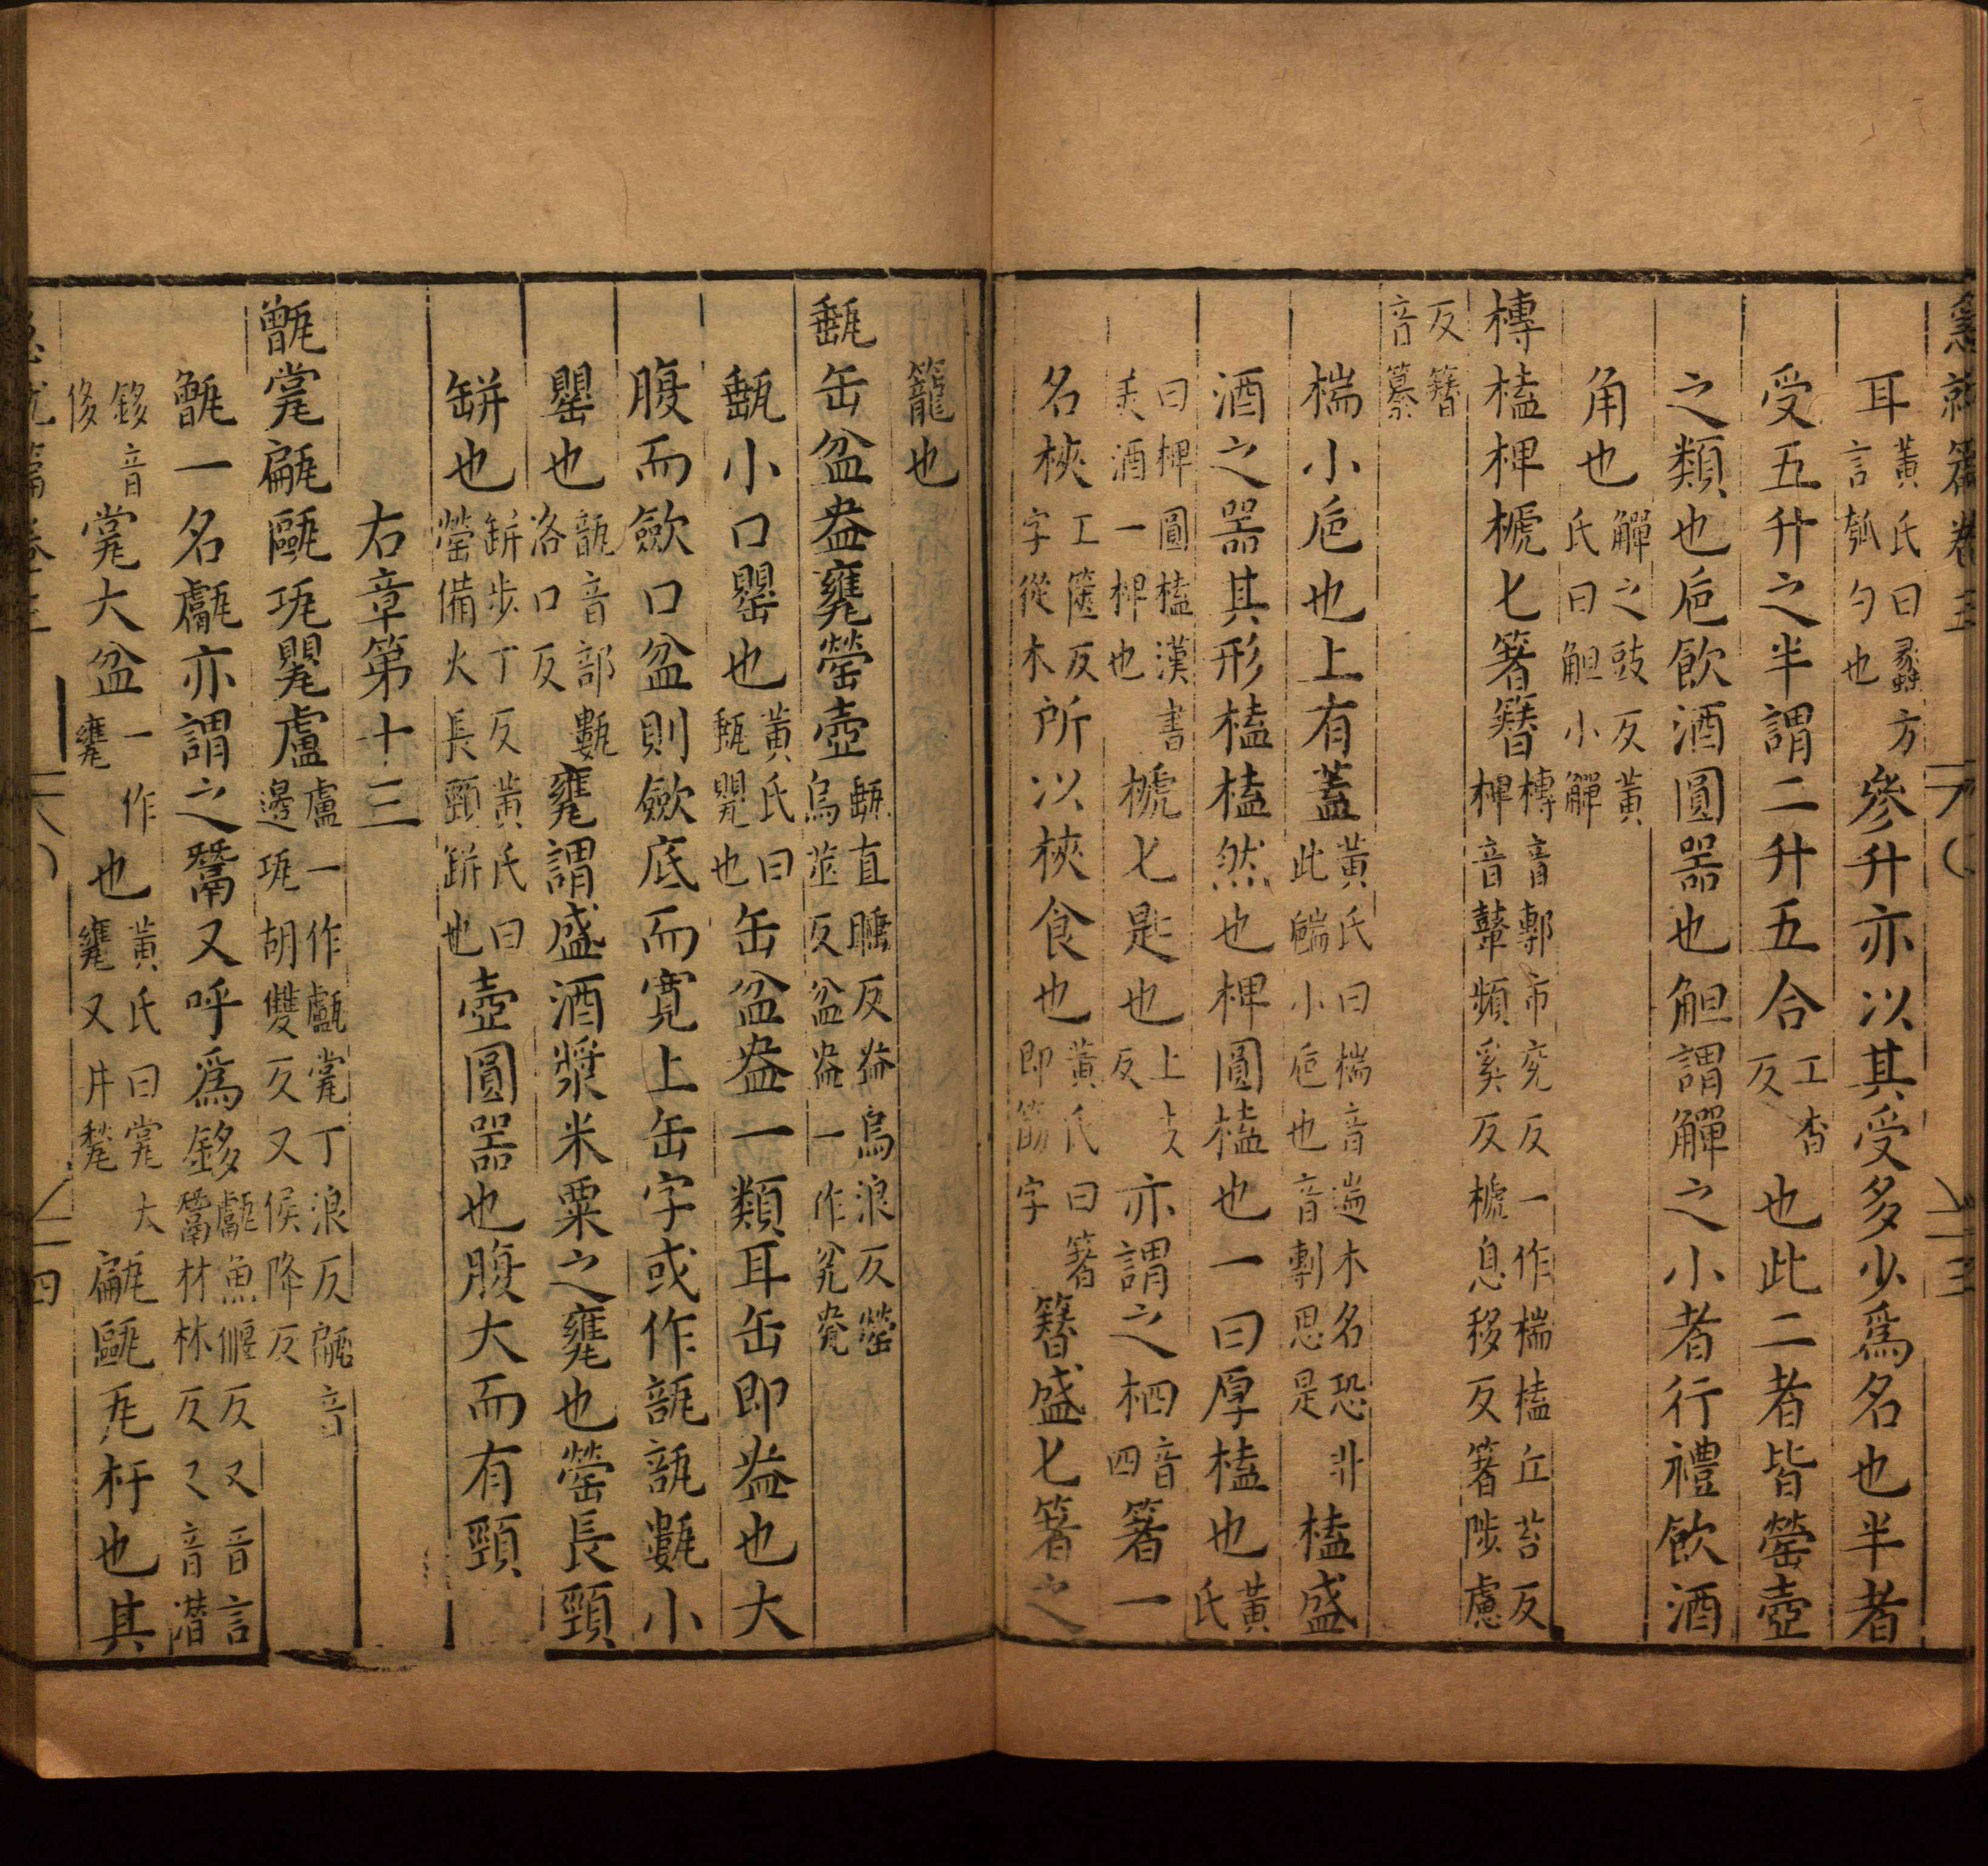 急就篇卷三
耳黃氏曰蠡方言瓠勺也參升亦以其受多少爲名也半者
受五升之半謂二升五合工沓反也此二者皆罃壺
之類也巵飲酒圓器也觛謂觶之小者行禮飲酒
角也觶之豉反黃氏曰觛小觶
槫榼椑榹匕箸簪槫音鄟市兖反一作椯榼丘苔反椑音鼙頻奚反榹息移反箸陟慮
反簪音纂
椯小巵也上有蓋黃氏曰椯音遄木名恐非此𨄔小巵也音剸思是榼盛
酒之器其形榼榼然也椑圓榼也一曰厚榼也黃氏
曰椑圓榼漢書美酒一椑也榹匕匙也上支反亦謂之柶音四箸一
名梜工篋反字從木所以梜食也黃氏曰箸即筯字簪盛匕箸之
籠也
甀缶盆盎甕罃壺甀直睡反㼜烏浪反罃烏莖反盆盎一作瓮㼜
甀小口罌也黃氏曰甀甖也缶盆盎一類耳缶即盎也大
腹而斂口盆則斂底而寬上缶字或作瓿瓿甊小
罌也瓿音部甊洛口反甕謂盛酒漿米粟之甕也罃長頸
缾也缾步丁反黃氏曰罃備火長頸缾也壺圓器也腹大而有頸
右章第十三
甑㼕甂甌瓨甖盧盧一作㽍㼕丁浪反甂音邊瓨胡雙反又侯降反
甑一名甗亦謂之鬵又呼爲鉹甗魚偃反又音言鬵材林反又音潛
鉹音侈㼕大盆一作甕也黃氏曰㼕大甕又井甃甂甌瓦杅也其